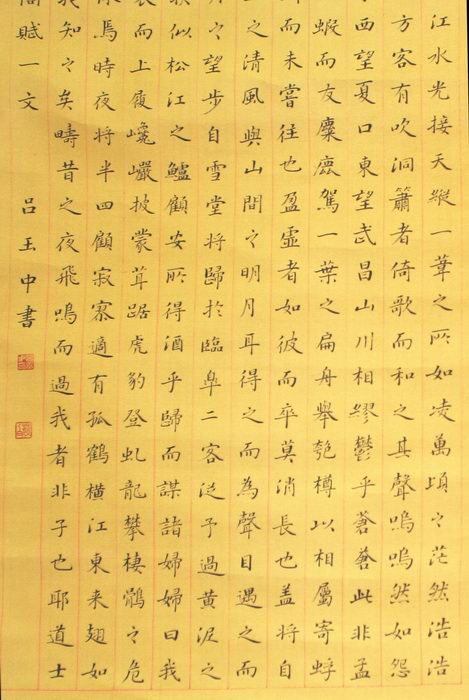 江水光接天縱一葦之所如凌萬頃之茫然浩浩
方客有吹洞簫者倚歌而和之其聲嗚嗚然如怨
西望夏口東望武昌山川相繆鬱乎蒼蒼此非孟
蝦而友麋鹿駕一葉之扁舟舉匏樽以相屬寄蜉
而未嘗往也盈虛者如彼而卒莫消長也盖將自
之清風與山間之明月耳得之而為聲目遇之而
之望步自雪堂將歸於臨皐二客從予過黃泥之
似松江之鱸顧安所得酒乎歸而謀諸婦婦曰我
而上履巉巖披蒙茸踞虎豹登虬龍攀棲鶻之危
焉時夜將半四顧寂寥適有孤鶴橫江東来翅如
我知之矣疇昔之夜飛鳴而過我者非子也耶道士
賦一文 吕王中書